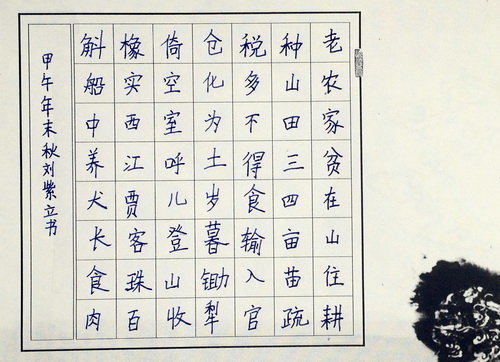 老农家贫在山住耕
种山田三四亩苗疏
税多不得食输入官
仓化为土岁暮锄犁
倚空室呼儿登山收
橡实西江贾客珠百
斛船中养犬长食肉
甲午年末秋刘紫立书